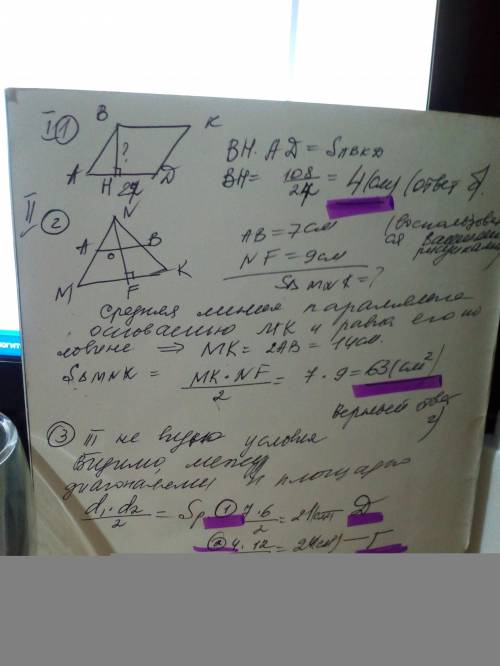 I 1
B K
?
A H 27 D
BH · AD = S ABKD
BH = 108/27 = 4 (см) (ответ б).
II 2
N
A B
O
M F K
AB = 7 см
NF = 9 см
S△MNK = ?
Средняя линия параллельна
основанию MK и равна его по
ловине ⇒ MK = 2AB = 14 см.
S△MNK = MK · NF / 2 = 7 · 9 = 63 (см²)
верный ответ
г)
3 III не вижу условия
Видимо, между
диагоналями и площадью
d1 · d2 / 2 = Sр 1 7 · 6 / 2 = 21 Д
2 4 · 12 = 24 (см²) — Г